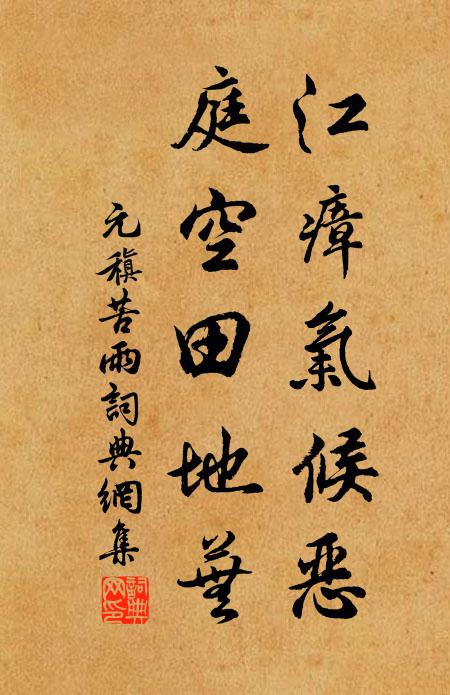 江瘴氣候惡
庭空田地蕪
元稹苦雨詞典網集
詞典
网印